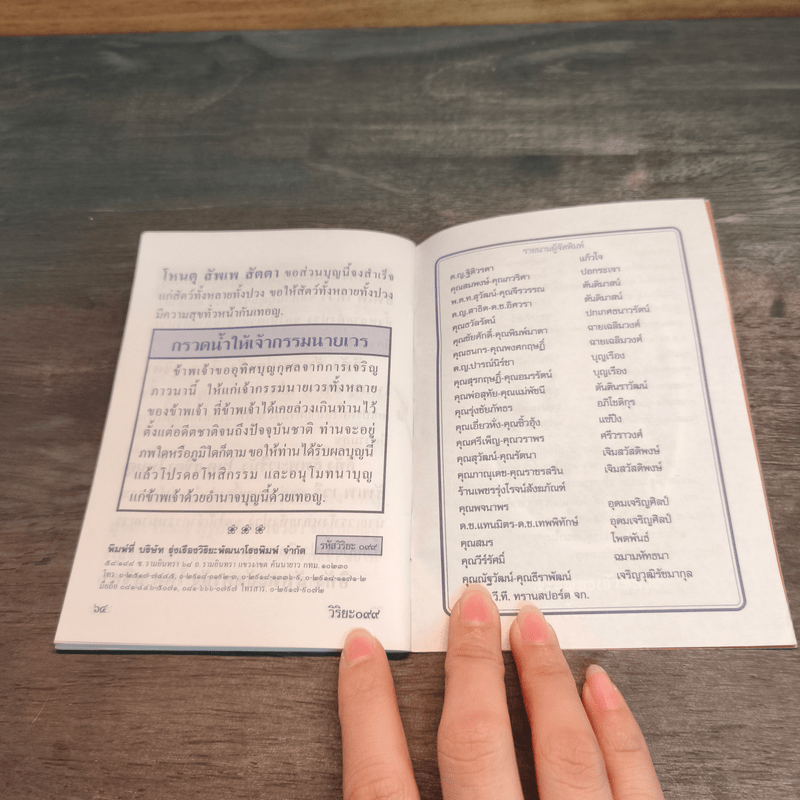 โหนตุ สัพเพ สัตตา ขอส่วนบุญนี้จงสำเร็จ
แก่สัตว์ทั้งหลายทั้งปวง ขอให้สัตว์ทั้งหลายทั้งปวง
มีความสุขทั่วหน้ากันเทอญ.
กรวดน้ำให้เจ้ากรรมนายเวร
ข้าพเจ้าขออุทิศบุญกุศลจากการเจริญ
ภาวนานี้ ให้แก่เจ้ากรรมนายเวรทั้งหลาย
ของข้าพเจ้า ที่ข้าพเจ้าได้เคยล่วงเกินท่านไว้
ตั้งแต่อดีตชาติจนถึงปัจจุบันชาติ ท่านจะอยู่
ภพใดหรือภูมิใดก็ตาม ขอให้ท่านได้รับผลบุญนี้
แล้วโปรดอโหสิกรรม และอนุโมทนาบุญ
แก่ข้าพเจ้าด้วยอำนาจบุญนี้ด้วยเทอญ.
พิมพ์ที่ บริษัท รุ่งเรืองวิริยะพัฒนาโรงพิมพ์ จำกัด รหัสวิริยะ ๐๙๙
ซ. รามอินทรา ๖๘ ถ. รามอินทรา แขวง/เขต คันนายาว กทม. ๑๐๒๓๐
๖๔
วิริยะ๐๙๙
รายนามผู้จัดพิมพ์
ด.ญ.ฐิติวรดา แก้วใจ
คุณสมพงษ์-คุณภวริศา ปอกระเจา
พ.ต.ท.สุวัฒน์-คุณจีรวรรณ ตันติมาสน์
ด.ญ.สาธิต-ด.ช.อิศวรา ตันติมาสน์
คุณธวัลรัตน์ ปทเกศธนาวรัตน์
คุณชัยศักดิ์-คุณพิมพ์มาดา ฉายเฉลิมวงศ์
คุณธนกร-คุณพงศกฤษฏิ์ ฉายเฉลิมวงศ์
ด.ญ.ปารณ์นิรัชา บุญเรือง
คุณสุรกฤษฏิ์-คุณอมรรัตน์ บุญเรือง
คุณพ่อสุทัย-คุณแม่พัชนี ตันตินราวัฒน์
คุณรุ่งชัยภัทธร อภิโชติกุร
คุณเฮี้ยวหั่ง-คุณซิ้วอุ้ง แซ่ปึง
คุณศรีเพ็ญ-คุณวราพร ศรีวราวงศ์
คุณสุวัฒน์-คุณรัตนา เจิมสวัสดิพงษ์
คุณภาณุเดช-คุณราชรสริน เจิมสวัสดิพงษ์
ร้านเพชรรุ่งโรจน์สังฆภัณฑ์
คุณพจนาพร อุดมเจริญศิลป์
ด.ช.แทนมิตร-ด.ช.เทพพิทักษ์ อุดมเจริญศิลป์
คุณสมร โพดพันธ์
คุณวีร์รัศมิ์ ฉมามหัทธนา
คุณณัฐวัฒน์-คุณธีราพัฒน์ เจริญวุฒิรัชมากุล
วี.ที. ทรานสปอร์ต จก.